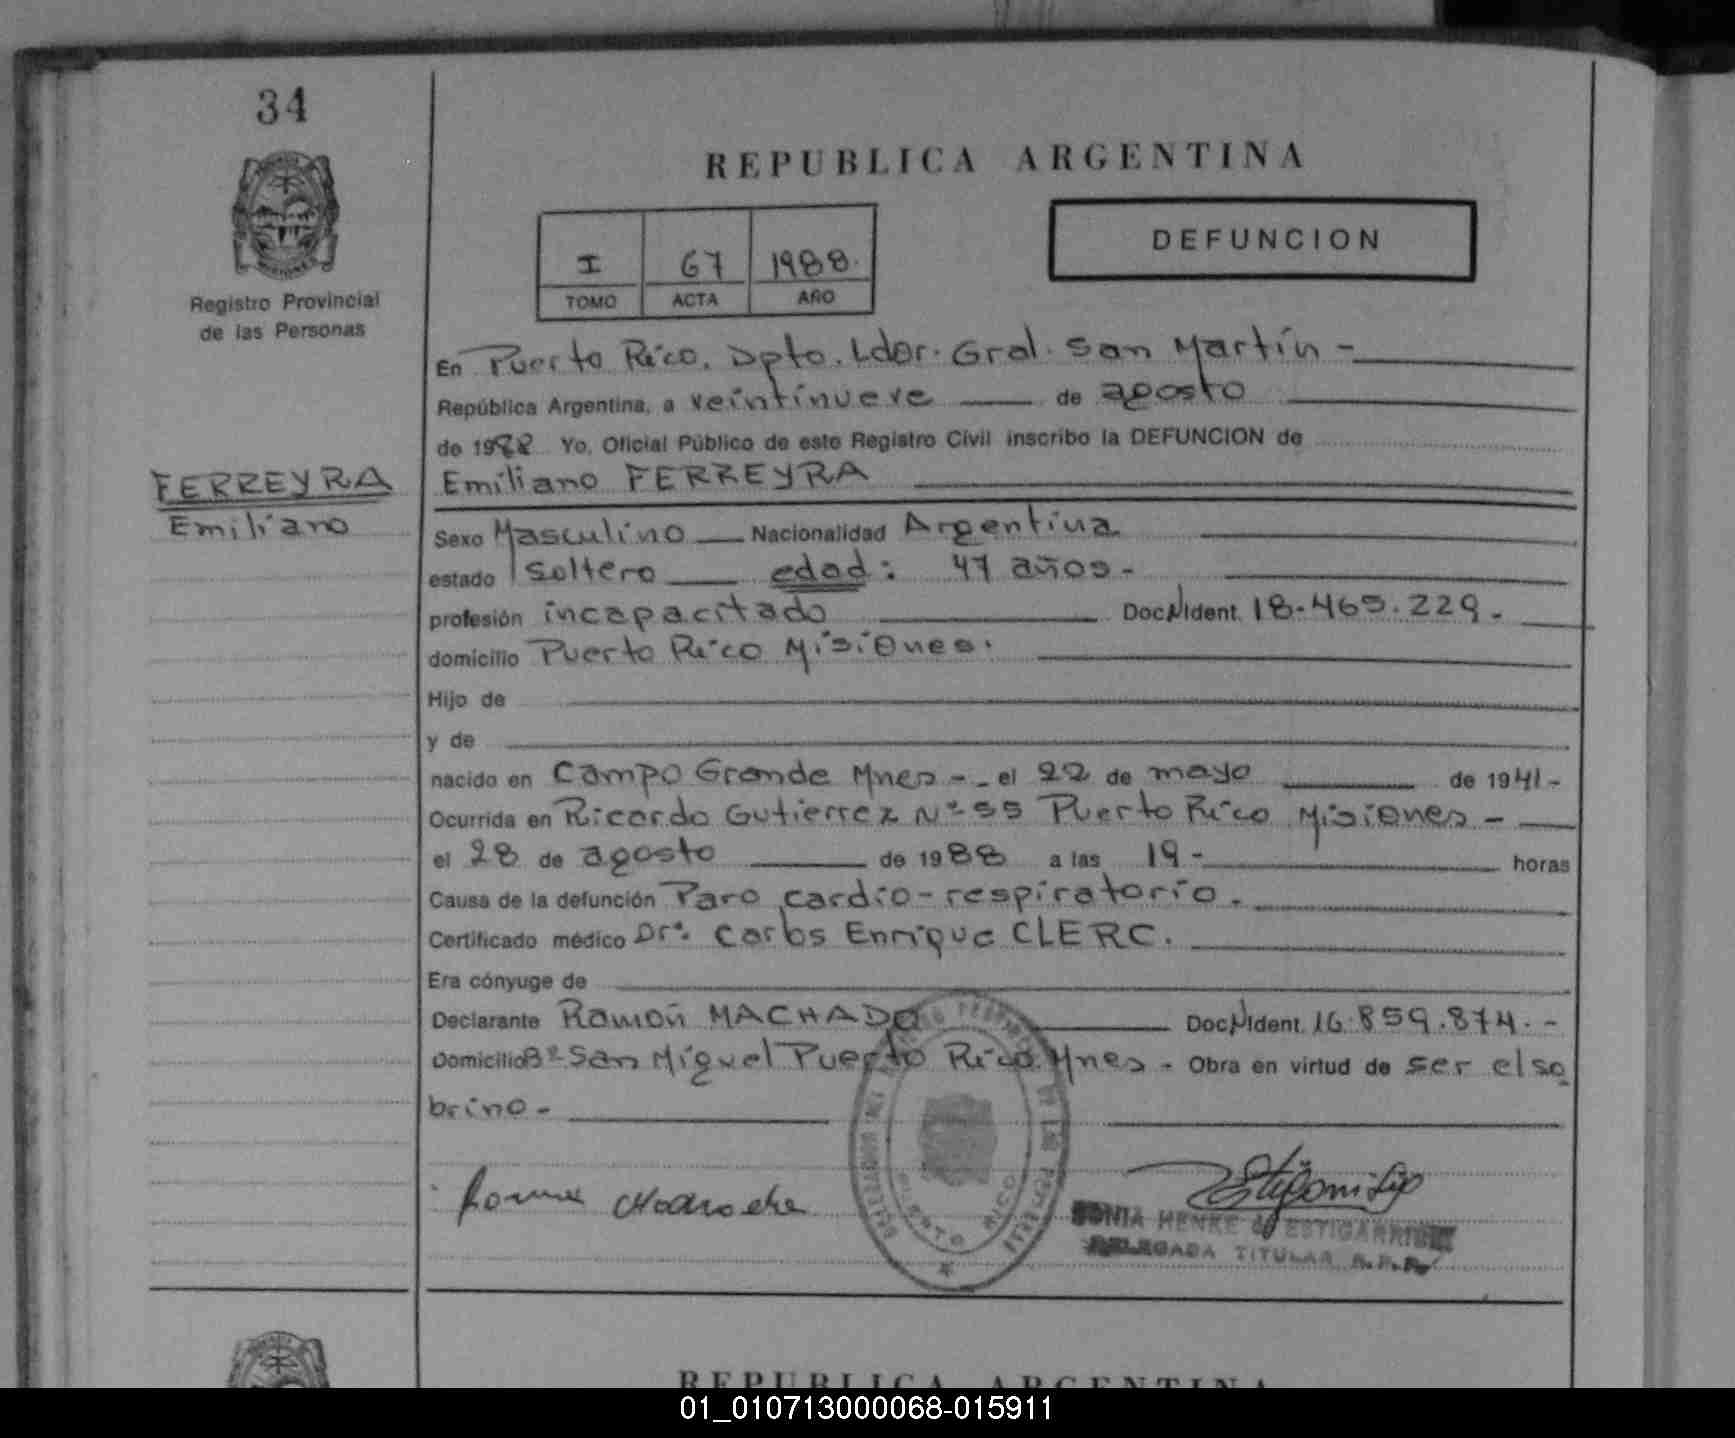 34
Registro Provincial
de las Personas
FERREYRA
Emiliano
REPUBLICA ARGENTINA
I 67 1988.
TOMO ACTA AÑO
DEFUNCION
En Puerto Rico. Dpto. Ldor. Gral. San Martín -
República Argentina, a veintinueve de agosto
de 1988 Yo, Oficial Público de este Registro Civil inscribo la DEFUNCION de
Emiliano FERREYRA
Sexo Masculino Nacionalidad Argentina
estado Soltero edad: 47 años -
profesión incapacitado Doc. N Ident. 18.465.229.-
domicilio Puerto Rico Misiones.
Hijo de
y de
nacido en Campo Grande Mnes - el 22 de mayo de 1941-
Ocurrida en Ricardo Gutierrez Nº 55 Puerto Rico Misiones -
el 28 de agosto de 1988 a las 19- horas
Causa de la defunción Paro cardio-respiratorio.
Certificado médico Dr. Carlos Enrique CLERC.
Era cónyuge de
Declarante Ramón MACHADO Doc. N Ident. 16.859.874.-
Domicilio Bº San Miguel Puerto Rico. Mnes - Obra en virtud de ser el so
brino -
PUERTO RICO
SONIA HENKE de ESTIGARRIBIA
DELEGADA TITULAR R.P.P.
REPUBLICA ARGENTINA
01_010713000068-015911